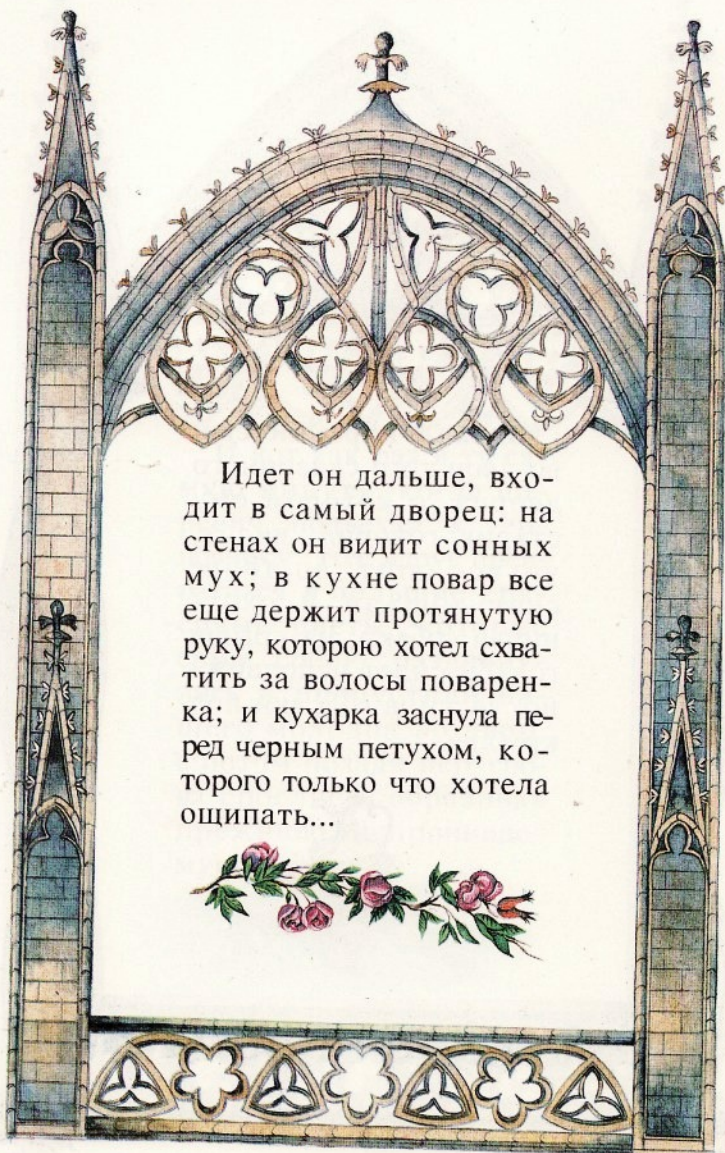 Идет он дальше, вхо-
дит в самый дворец: на
стенах он видит сонных
мух; в кухне повар все
еще держит протянутую
руку, которою хотел схва-
тить за волосы поварен-
ка; и кухарка заснула пе-
ред черным петухом, ко-
торого только что хотела
ощипать...